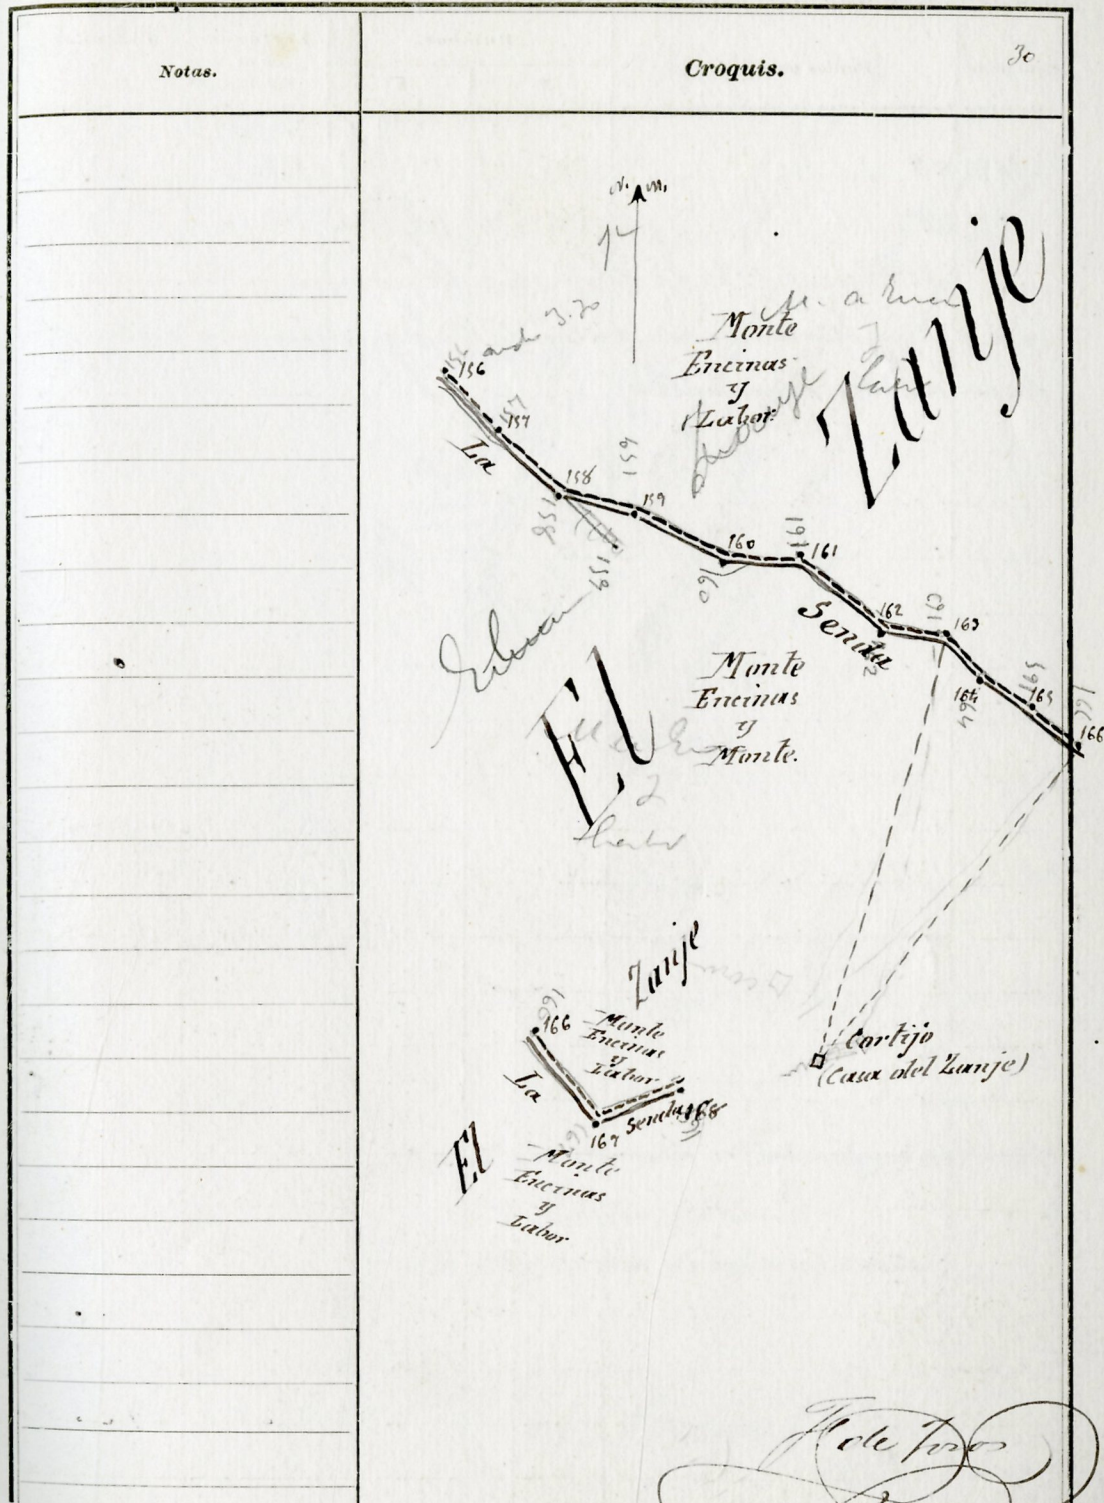 Notas.
Croquis.
30
N. M.
Zanje
Monte
Encinas
y
Labor
156
157
La
158
159
160
161
162
163
164
165
166
Senda
158
159
160
161
164
166
El
Monte
Encinas
y
Monte.
Zanje
166
Monte
Encinas
y
Labor
La
167
Senda
168
El
Monte
Encinas
y
Labor
Cortijo
(Casa del Zanje)